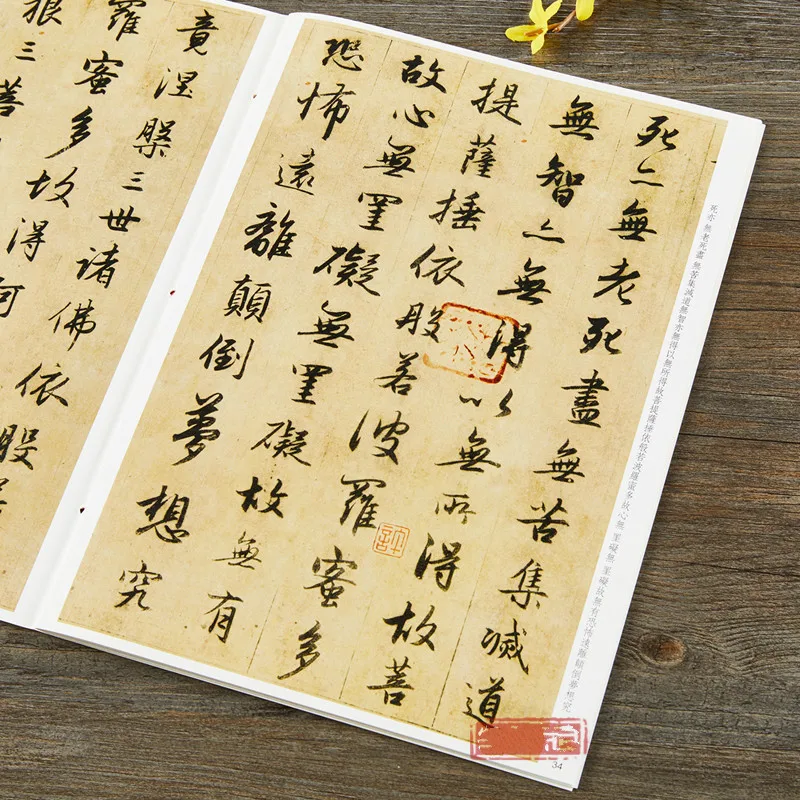 死亦無老死盡無苦集滅道
無智亦無得以無所得故菩
提薩捶依般若波羅蜜多
故心無罣礙無罣礙故無有
恐怖遠離顛倒夢想究
竟涅槃三世諸佛依般
羅蜜多故得阿
三菩
死亦 無老死盡 無苦集滅道無智亦無得以無所得故菩提薩捶依般若波羅蜜多故心無 罣礙無 罣礙故無有恐怖遠離顛倒夢想究
34